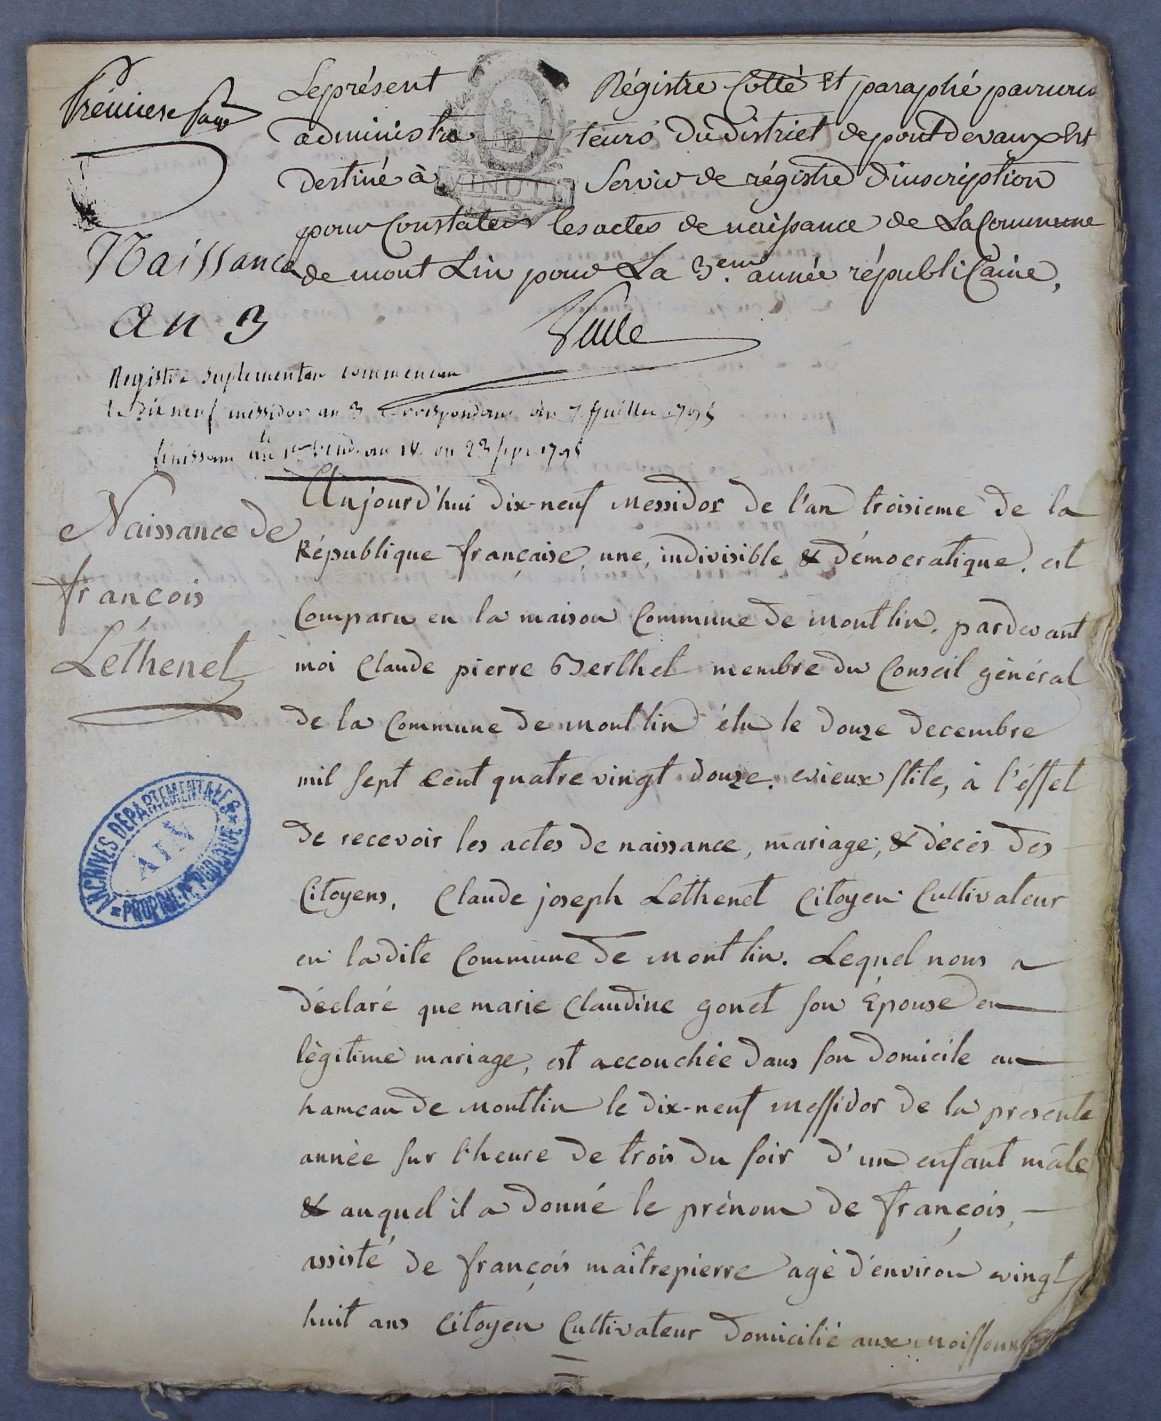 Premiere page
Le présent Régistre Cotté Et paraphé par nous
administrateurs du district de pont devaux Est
Destiné à Servir de régistre D'inscription
pour Constater les actes de naissance de La Commune
de mont Lin pour La 3.eme année républicaine,
Naissance
an 3
Registre suplementair commencan
le Dix neuf messidor an 3 correspondant au 7 Juillet 1795
finissan le 1er vend. an IV. ou 23 sept 1795
Naissance de
françois
Léthenet
Aujourd'hui dix-neuf Messidor de l'an troisieme de la
République française, une, indivisible & démocratique. est
Comparu en la maison Commune de Montlin, pardevant
moi Claude pierre Berthet membre du Conseil général
de la Commune de Montlin élu le douze decembre
mil sept cent quatre vingt douze. vieux stile, à l'éffet
de recevoir les actes de naissance, mariage, & décès des
Citoyens, Claude joseph Lethenet Citoyen Cultivateur
en ladite Commune de Montlin. Lequel nous a
déclaré que marie Claudine gonet son Épouse en
légitime mariage, est accouchée dans son domicile au
hameau de Montlin le dix-neuf Messidor de la presente
année sur l'heure de trois du soir d'un enfant mâle
& auquel il a donné le prénom de françois,
assisté de françois maîtrepierre agé d'environ vingt
huit ans Citoyen Cultivateur domicilié aux
ARCHIVES DÉPARTEMENTALES
AIN
PROPRIÉTÉ PUBLIQUE